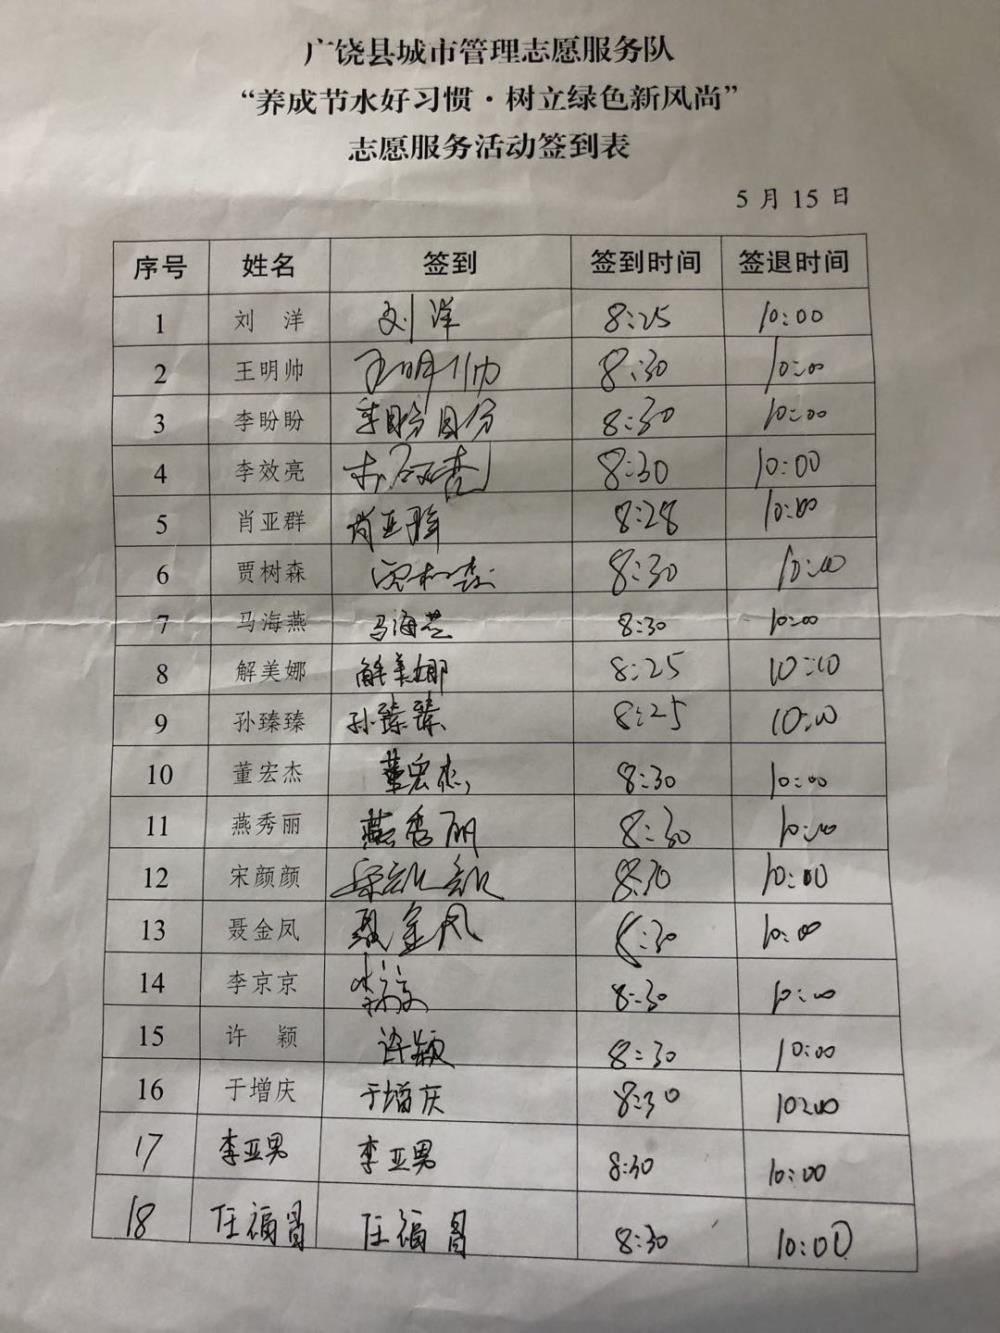 广饶县城市管理志愿服务队
“养成节水好习惯·树立绿色新风尚”
志愿服务活动签到表
5 月 15 日
序号 姓名 签到 签到时间 签退时间
1 刘 洋 刘洋 8:25 10:00
2 王明帅 王明帅 8:30 10:00
3 李盼盼 李盼盼 8:30 10:00
4 李效亮 李效亮 8:30 10:00
5 肖亚群 肖亚群 8:28 10:00
6 贾树森 贾树森 8:30 10:00
7 马海燕 马海芝 8:30 10:00
8 解美娜 解美娜 8:25 10:00
9 孙臻臻 孙臻臻 8:25 10:00
10 董宏杰 董宏杰 8:30 10:00
11 燕秀丽 燕秀丽 8:30 10:00
12 宋颜颜 宋颜颜 8:30 10:00
13 聂金凤 聂金凤 8:30 10:00
14 李京京 李京京 8:30 10:00
15 许 颖 许颖 8:30 10:00
16 于增庆 于增庆 8:30 10:00
17 李亚男 李亚男 8:30 10:00
18 任福 任福 8:30 10:00